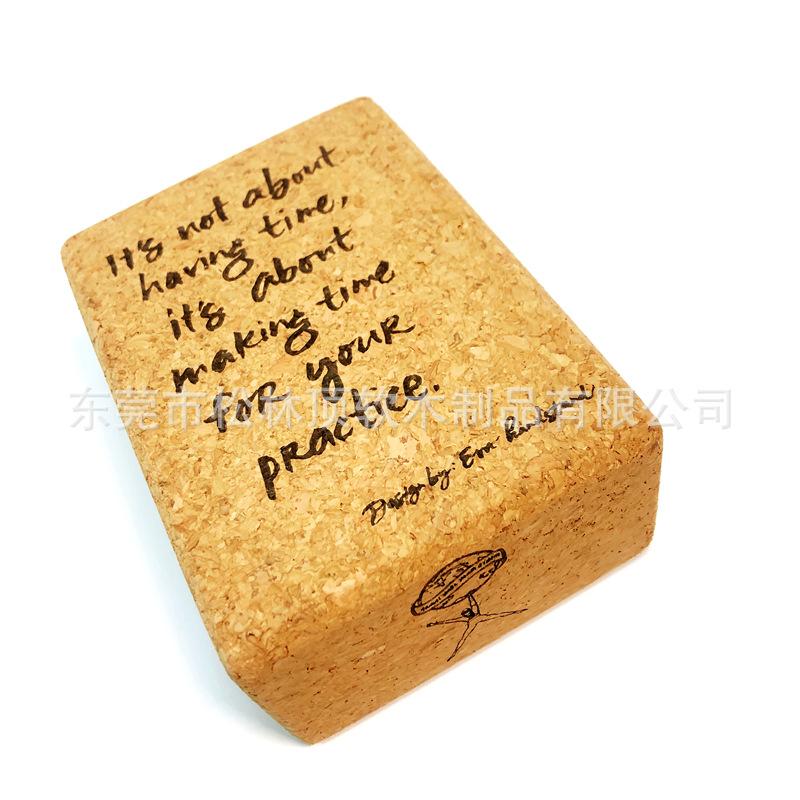 It's not about
having time,
it's about
making time
for your
practice.
东莞市松林顶软木制品有限公司
Design by: Erin